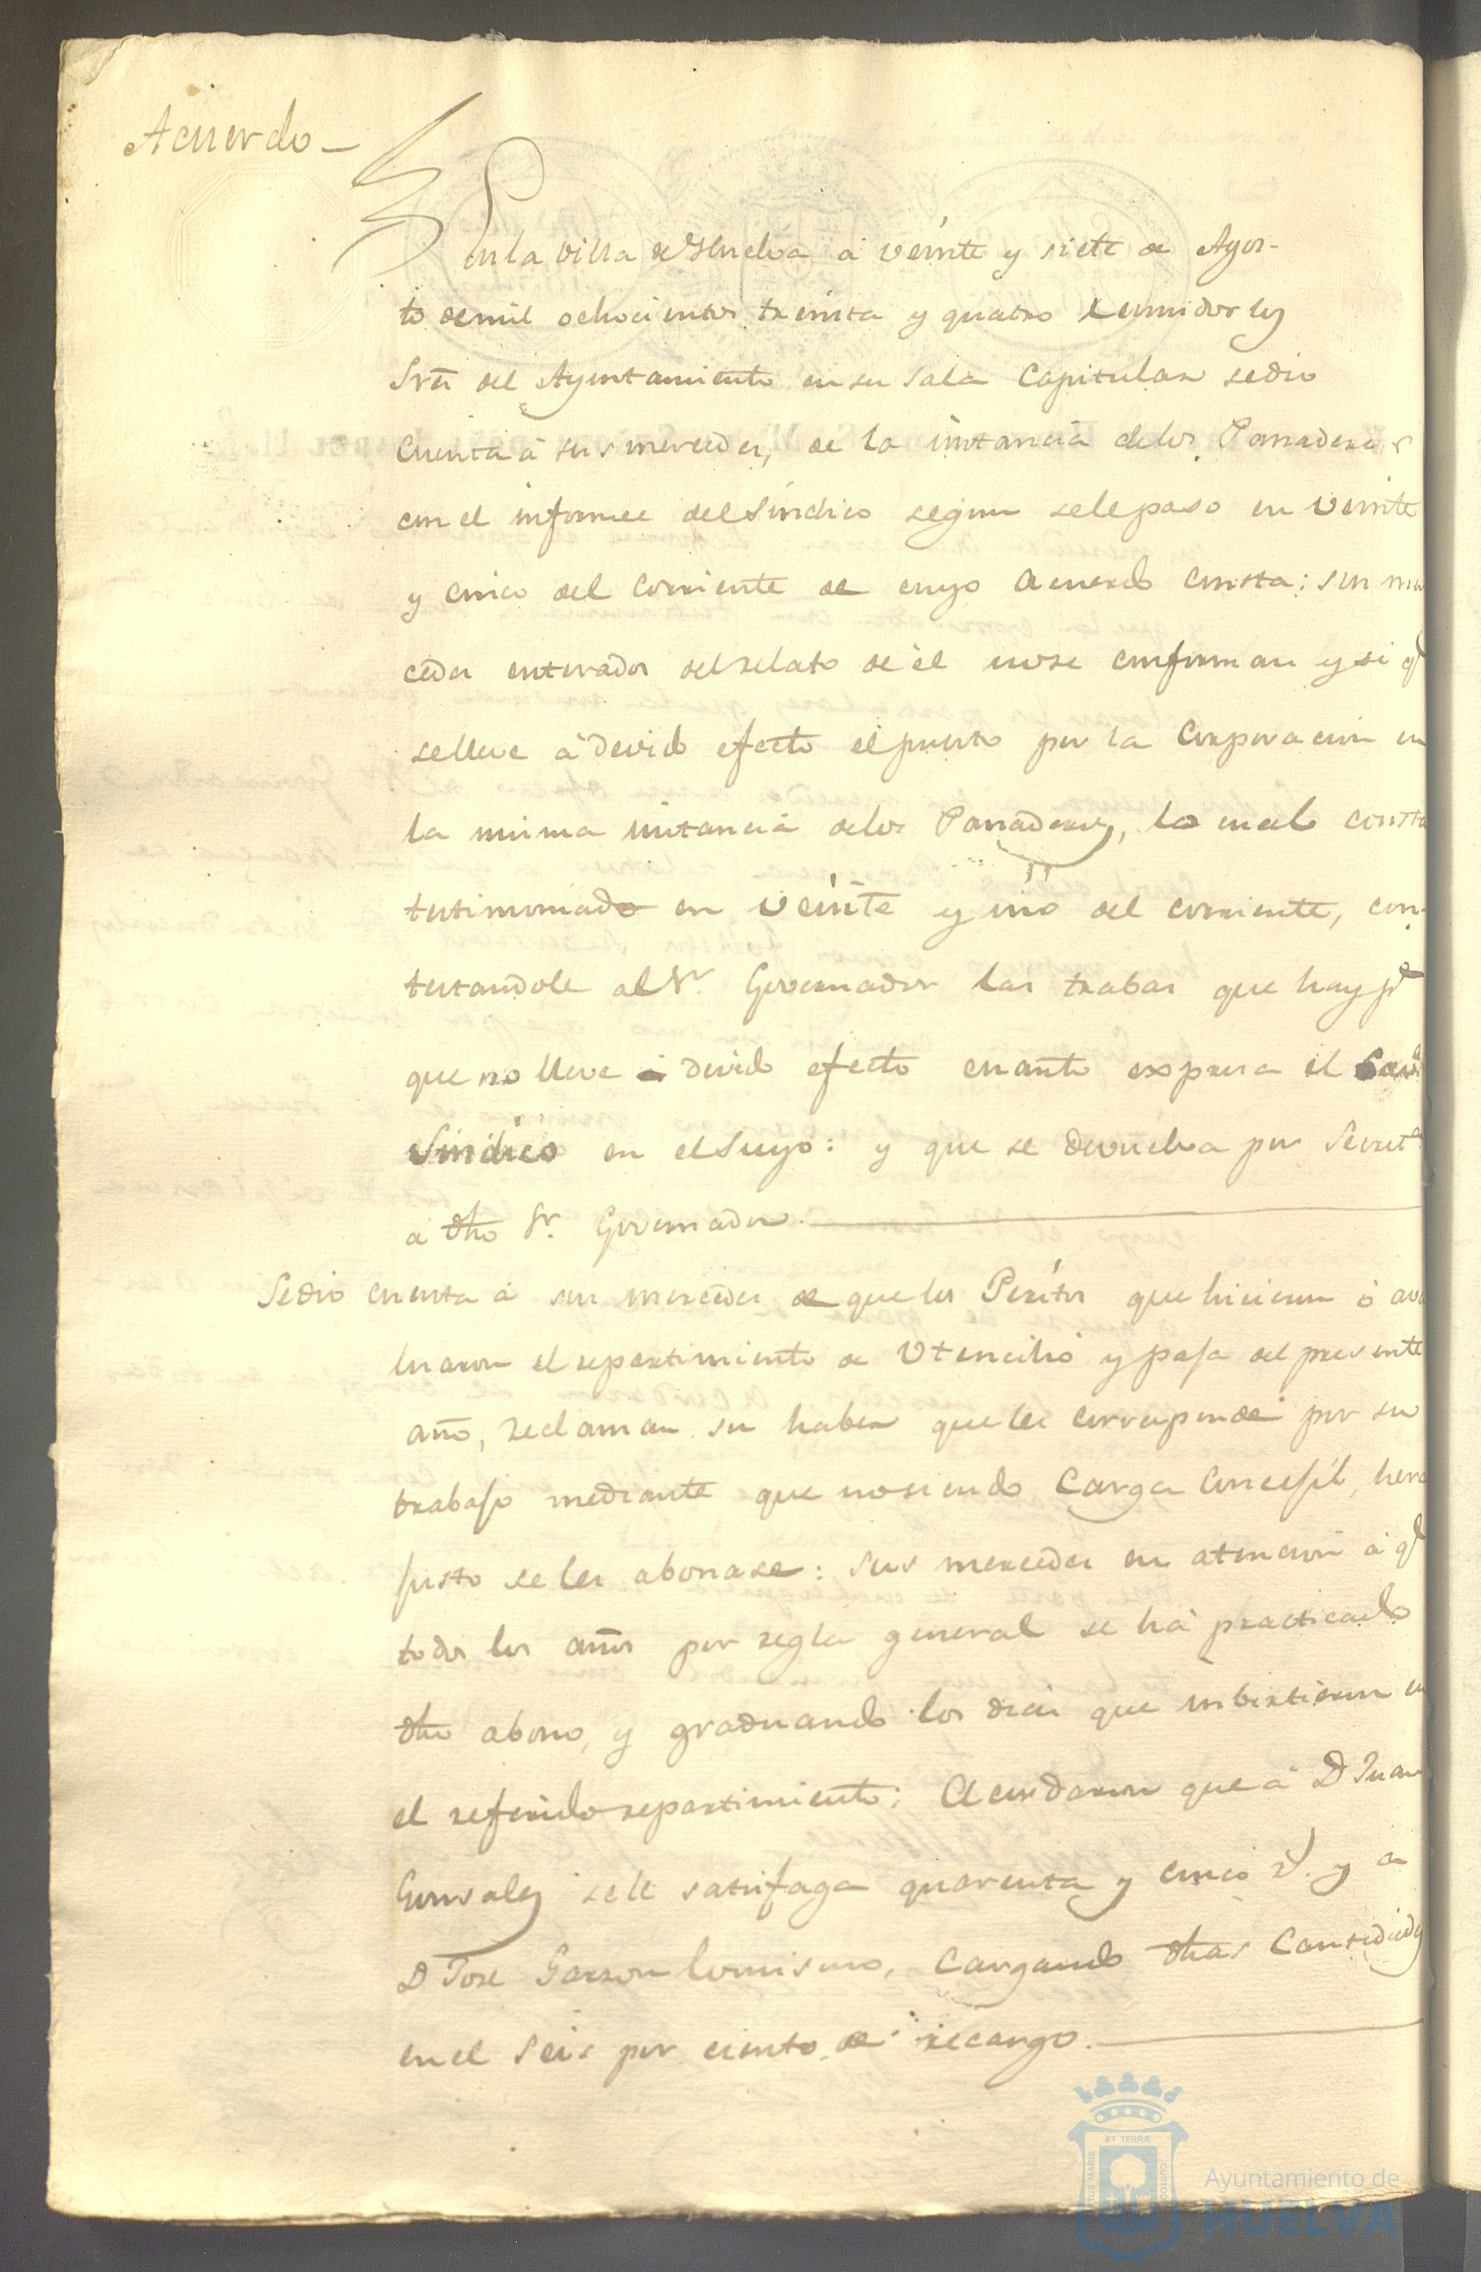 Acuerdo _
En la villa de Huelva á veinte y siete de Agos-
to de mil ochocientos treinta y quatro reunidos los
Sres del Ayuntamiento en su Sala Capitular se dio
Cuenta á sus mercedes, de la instancia de los Panaderos
con el informe del Sindico segun se le paso en veinte
y cinco del Corriente de cuyo Acuerdo consta: sus mer
cedes enterados del relato de él no se conforman y si qe
se lleve á devido efecto el puesto por la Corporacion en
la misma instancia de los Panaderos, lo cual consta
testimoniado en veinte y uno del corriente, con-
testandole al Sr. Governador las trabas que hay pa
que no lleve á devido efecto cuanto expresa el
Sindico en el Suyo: y que se devuelva por Secreta
a dho Sr. Governador.
Se dio cuenta á sus mercedes de que los Peritos que hicieron ó ava
luaron el repartimiento de Utencilio y paja del presente
año, reclaman su haber que les corresponde por su
trabajo mediante que no siendo Carga Concejil, hera
justo se les abonase: sus mercedes en atencion á qe
todos los años por regla general se há practicado
dho abono, y graduando los dias que imbirtieron en
el referido repartimiento: Acordaron que á D Juan
Gonsales se le satisfaga quarenta y cinco rs. y a
D Jose Garzon lo mismo, Cargando dhas Cantidades
en el seis por ciento de recargo.
ET TERRÆ
CUSTODIA
Ayuntamiento de
HUELVA